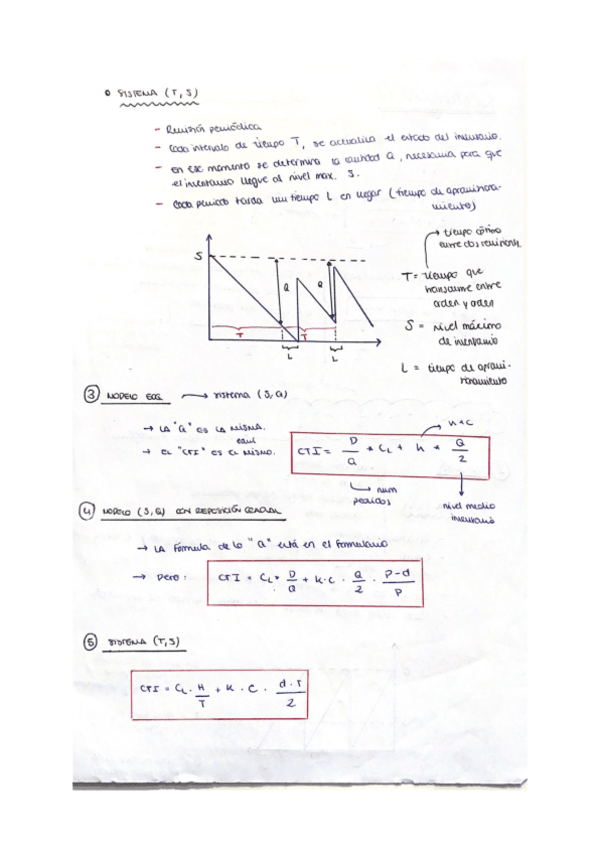 SISTEMA (T, S)
- Revisión periódica
- Cada intervalo de tiempo T, se actualiza el estado del inventario.
- en ese momento se determina la cantidad Q, necesaria para que
el inventario llegue al nivel max. S.
- Cada periodo tarda un tiempo L en llegar (tiempo de aprovisiona-
miento)
tiempo óptimo
entre dos
S
Q
Q
T
T
L
L
T = tiempo que
transcurre entre
orden y orden
S = nivel máximo
de inventario
L = tiempo de aprovi-
sionamiento
③ MODELO EOQ → sistema (S, Q)
→ LA "Q" ES LA MISMA.
→ EL "CTI" ES EL MISMO.
CTI = D/Q * CL + h * Q/2
K*C
num
pedidos
nivel medio
inventario
④ MODELO (S, Q) CON REPOSICIÓN GRADUAL
→ LA fórmula de la "Q" está en el formulario
→ Pero: CTI = CL * D/Q + K·C · Q/2 · P-d/P
⑤ SISTEMA (T, S)
CTI = CL · H/T + K · C · d·T/2